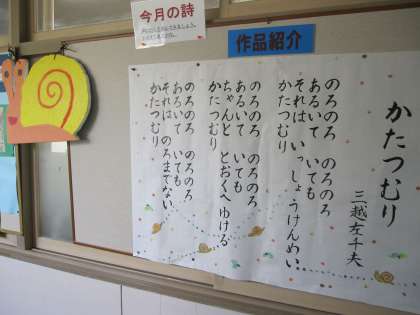 今月の詩
作品紹介
かたつむり
三越左千夫
のろのろ のろのろ
あるいて いても
それは いっしょうけんめい
かたつむり
のろのろ のろのろ
あるいて いても
ちゃんと とおくへゆける
かたつむり
のろのろ のろのろ
あるいて いても
それは のろまでない
かたつむり